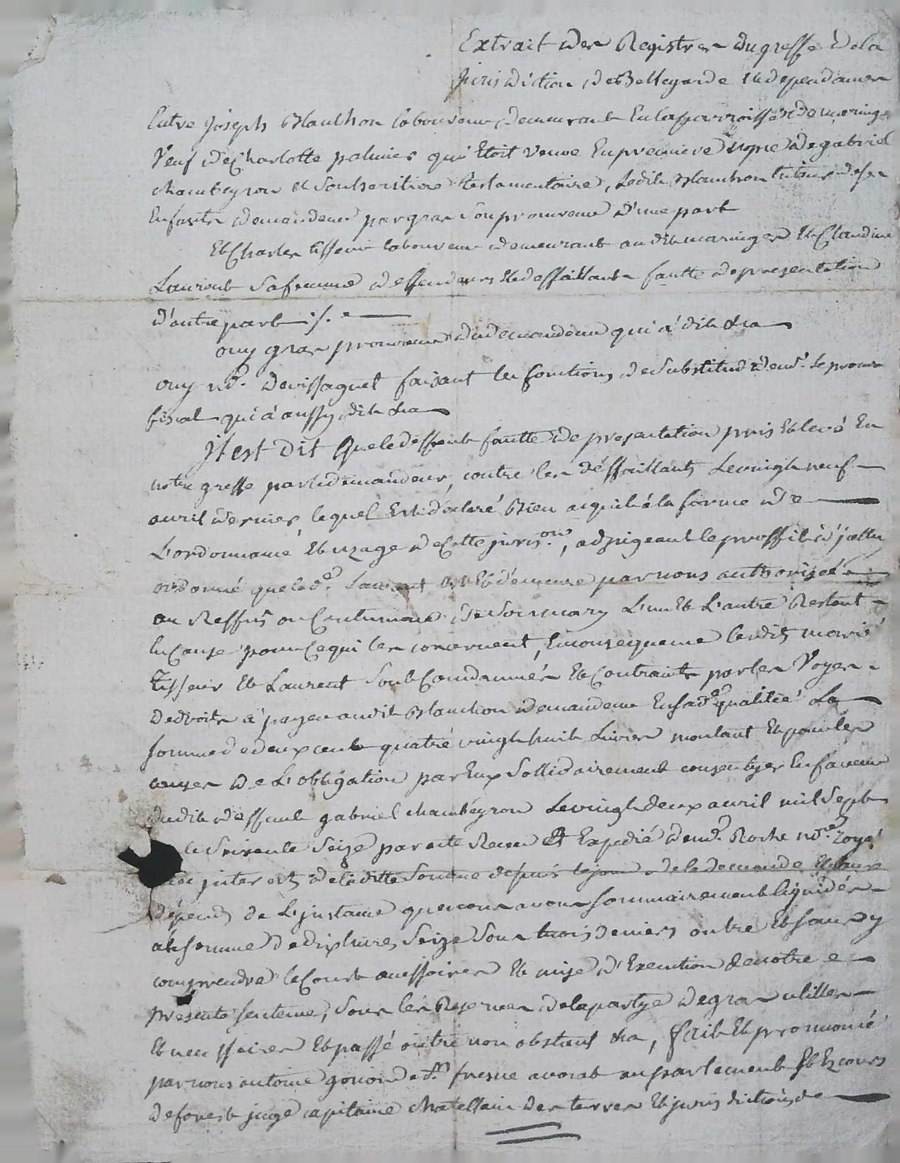 Extrait des Registres du greffe de la
Jurisdiction de Bellegarde et dependances
Entre Joseph Blanchon laboureur demeurant en la parroisse de maringe
Veuf de Charlotte palmier qui Etoit veuve en premiere nopce de gabriel
chambeyron et son heritiere testamentaire, ledit Blanchon tuteur de ses
Enfants demandeur par gras son procureur d'une part
Et Charles tisseur laboureur demeurant audit maringes Et Claudine
Laurent sa femme deffendeurs et deffaillants fautte de presentation
d'autre part ./.
ouy gras procureur du demandeur qui à dit &a
ouy me. Devissaguet faisant les fonctions de substitud de mr. le procur
fiscal qui à aussy dit &a
Il est dit que le deffaut fautte de presentation pris Et levé En
notre greffe par le demandeur, contre les déffaillants le vingt neuf
avril dernier, lequel Est déclaré Bien acquit à la forme de
L'ordonnance Et uzage de cette juris.on, adjugeant le proffit d'jcelluy
ordonné que lad.e Laurent Est Et demeure par nous authorizée
au Reffus ou Contumace de son mary L'un Et L'autre Restant
En Cause pour ce qui les concernent, En consequence lesdits mariés
tisseur Et Laurent sont Condamnés Et Contraints par les Voyes
De droits à payer audit Blanchon demandeur En sad.e qualitée La
somme de deux cent quatre vingt huit Livres montant Et pour les
causes de L'obligation par Eux sollidairement consentyes En faveur
dudit deffunt gabriel chambeyron le vingt deux avril mil sept
cent soixante seize par acte Reçu Et Expedié de me. Roche no.re royal
interets de la ditte somme depuis le jour de la demande Et aux
dépends de L'justance que nous avons sommairement liquidés
a la somme De dix livres seize sous trois deniers outre Et sans y
comprendre le Cout accessoires Et mise d'Execution de notre
presente sentence, sous les Reserves de la partye de gras utilles
Et necessaires Et passé outre non obstant &a, fait Et prononcé
par nous antoine gonon de st. fresne avocat au parlement Et Ez cours
de forest juge capitaine chatellain des terres Et jurisdictions de